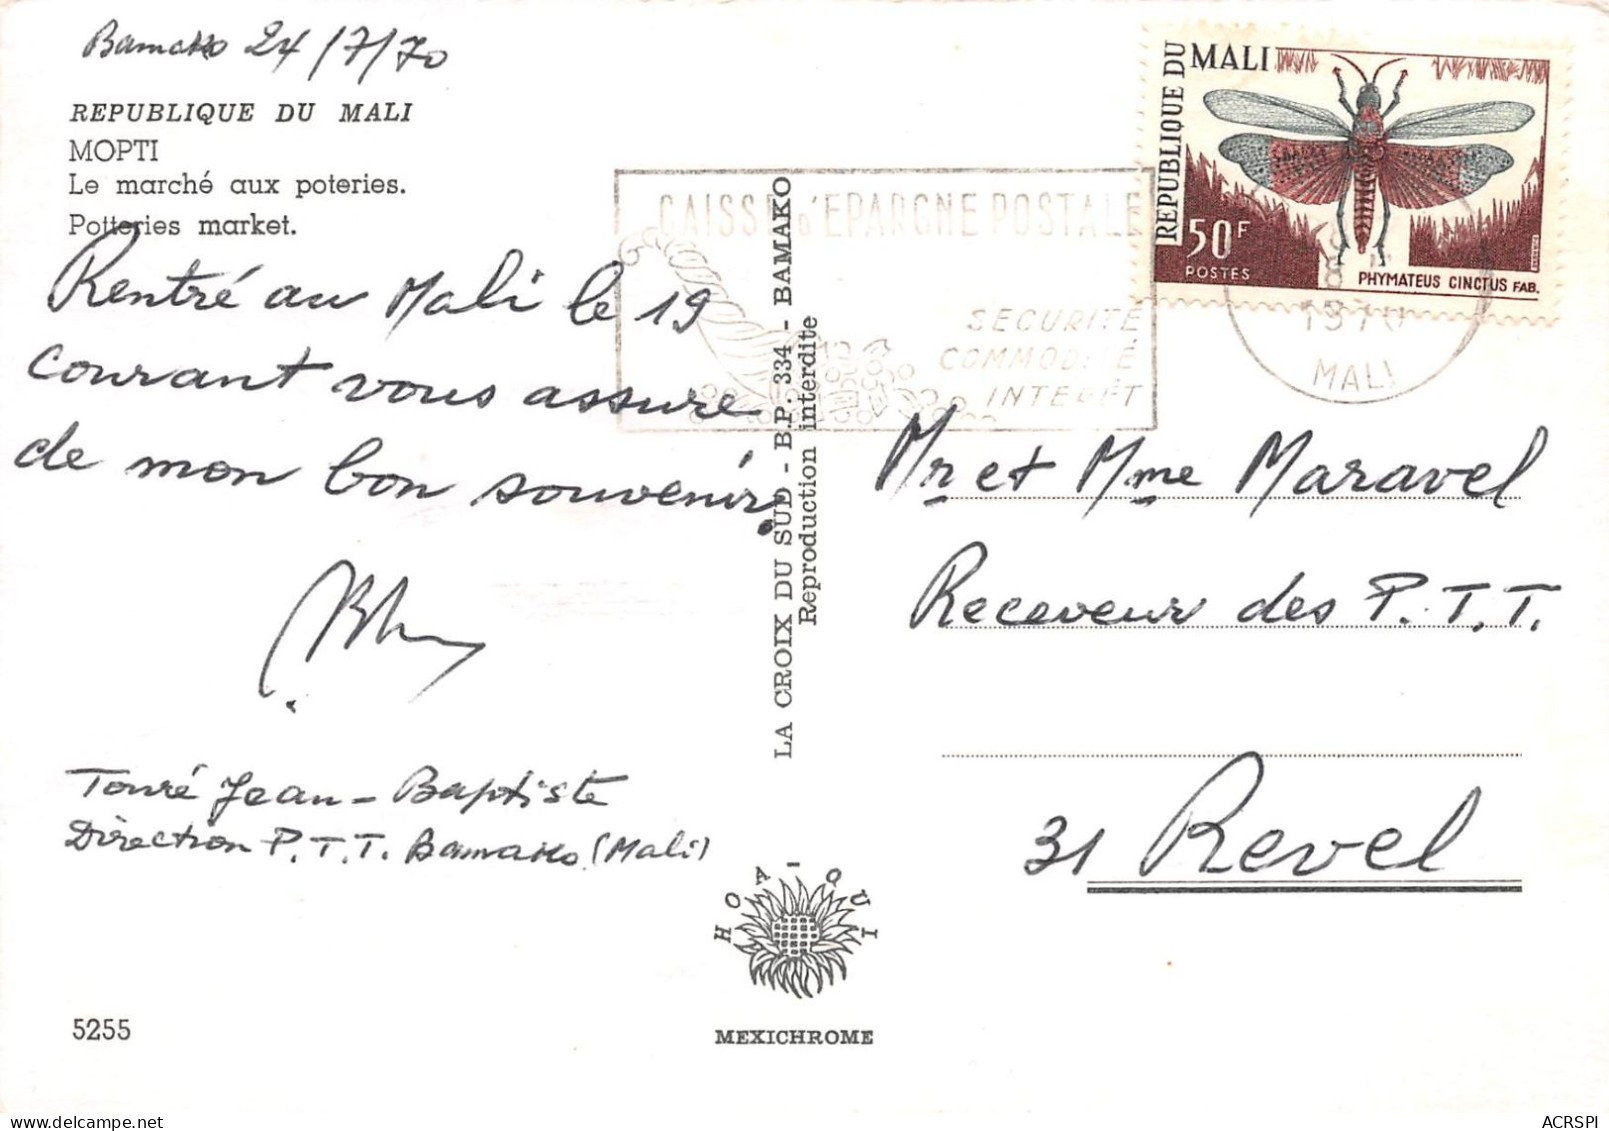 Bamako 24/7/70
REPUBLIQUE DU MALI
MOPTI
Le marché aux poteries.
Potteries market.
Rentré au Mali le 19
courant vous assure
de mon bon souvenir.
Touré Jean-Baptiste
Direction P.T.T. Bamako (Mali)
5255
LA CROIX DU SUD - B.P. 334 - BAMAKO
Reproduction interdite
HOA-QUI
MEXICHROME
CAISSE d'EPARGNE POSTALE
SECURITE
COMMODITÉ
INTERÉT
REPUBLIQUE DU MALI
50F
POSTES
PHYMATEUS CINCTUS FAB.
8
1970
MALI
Mr et Mme Maravel
Receveur des P.T.T.
31 Revel
ACRSPI